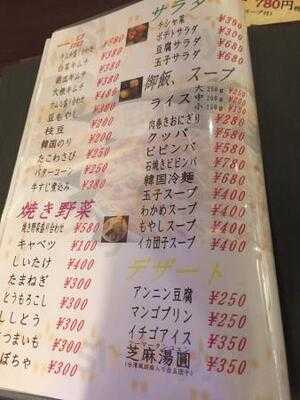 一品
キムチ盛り合わせ ¥780
白菜キムチ ¥380
胡瓜キムチ ¥380
大根キムチ ¥380
豆もやし ¥250
枝豆 ¥280
韓国のり ¥200
たこわさび ¥250
バターコーン ¥280
牛すじ煮込み ¥380
焼き野菜
焼き野菜盛り合わせ ¥580
キャベツ ¥300
しいたけ ¥400
たまねぎ ¥300
とうもろこし ¥300
ししとう ¥300
さつまいも ¥300
かぼちゃ ¥300
サラダ
チシャ菜 ¥380
ポテトサラダ ¥380
豆腐サラダ ¥380
玉子サラダ ¥380
御飯、スープ
ライス 大 中 小
肉巻きおにぎり ¥280
クッパ ¥680
ビビンバ ¥580
石焼きビビンバ ¥680
韓国冷麺 ¥680
玉子スープ ¥400
わかめスープ ¥400
もやしスープ ¥400
イカ団子スープ ¥400
デザート
アンニン豆腐 ¥250
マンゴプリン ¥250
イチゴアイス ¥350
芝麻湯圓 ¥350
780円